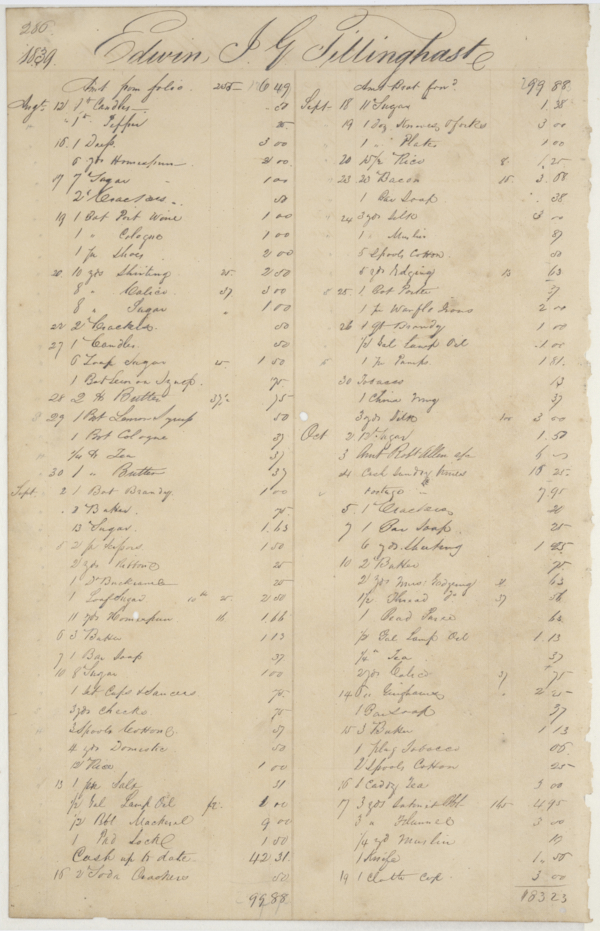 286
1839 Edwin, J G Tillinghast
Amt from folio 255 649
Augt 12 1 lb Candles 50
" 1 " Pepper 25
15 1 3 00
6 yds Homespun 2 00
17 7 " Sugar 1 00
2 " Crackers 50
19 1 Bot Port Wine 1 00
1 " Cologne 1 00
1 pr Shoes 2 00
20 10 yds Shirting 25 2 50
8 " Calico 37 3 00
8 " Sugar 1 00
22 2 " Crackers 50
27 1 " Candles 50
6 Loaf Sugar 1 50
1 Bot Lemon Syrup 75
28 2 lb Butter 37½ 75
29 1 Bot Lemon Syrup 50
1 Bot Cologne 37
¼ lb Tea 37
30 1 " Butter 37
Sept 2 1 Bot Brandy 1 00
2 " Butter 75
13 " Sugar 1.63
5 2 pr 1 50
2 yds Ribbon 25
1 " Buckram 25
1 Loaf Sugar 2 50
11 yds Homespun 1.66
6 3 " Butter 1 13
7 1 Bar Soap 37
10 8 " Sugar 1 00
1 set Cups & Saucers 75
3 yds Checks 75
3 Spools Cotton 37
4 yds Domestic 50
12 " Rice 1 00
13 1 Salt 31
½ Gal Lamp Oil 1 00
½ Bbl Mackerel 9 00
1 Pad Lock 1 50
Cash up to date 42 31
16 2 " Soda Crackers 50
99 88
Amt Brot forwd 99 88
Sept 18 11 " Sugar 1 38
19 1 Doz Knives & Forks 3 00
1 " Plates 1 00
20 Rice 8 1.25
23 23 " Bacon 15 3 58
1 Bar Soap 38
24 3 yds Silk 3 00
1 " Muslin 87
5 Spools Cotton 50
5 yds Edging 63
25 1 Bot Porter 37
1 pr Waffle Irons 2 00
26 1 qt Brandy 1 00
½ Gal Lamp Oil 1 00
1 pr Pumps 1 81
30 Tobacco 13
1 China Mug 37
3 yds Silk 3 00
Oct 2 12 " Sugar 1.50
3 Amt Robt Allen 6 00
4 Cash Sundry times 18 25
Postage " 7 95
5 1 " Crackers 20
7 1 Bar Soap 25
6 yds Sheeting 1 25
10 2 " Butter 75
2 yds Edging 63
½ Thread 37 56
1 62
½ Gal Lamp Oil 1.13
¼ " Tea 37
2 yds Calico 37 75
14 Gingham 2 25
1 Bar Soap 37
15 3 " Butter 1 13
1 plug Tobacco 06
2 Spools Cotton 25
16 1 Caddy Tea 3 00
17 3 yds 165 4.95
3 " Flannel 3 00
¼ yd Muslin 19
1 1.50
19 1 Cloth Cap 3 00
183.23